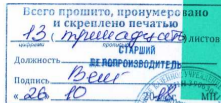 Всего прошито, пронумеровано
и скреплено печатью
13 (тринадцать) листов
СТАРШИЙ
Должность ДЕЛОПРОИЗВОДИТЕЛЬ
Подпись
«26» 10 20